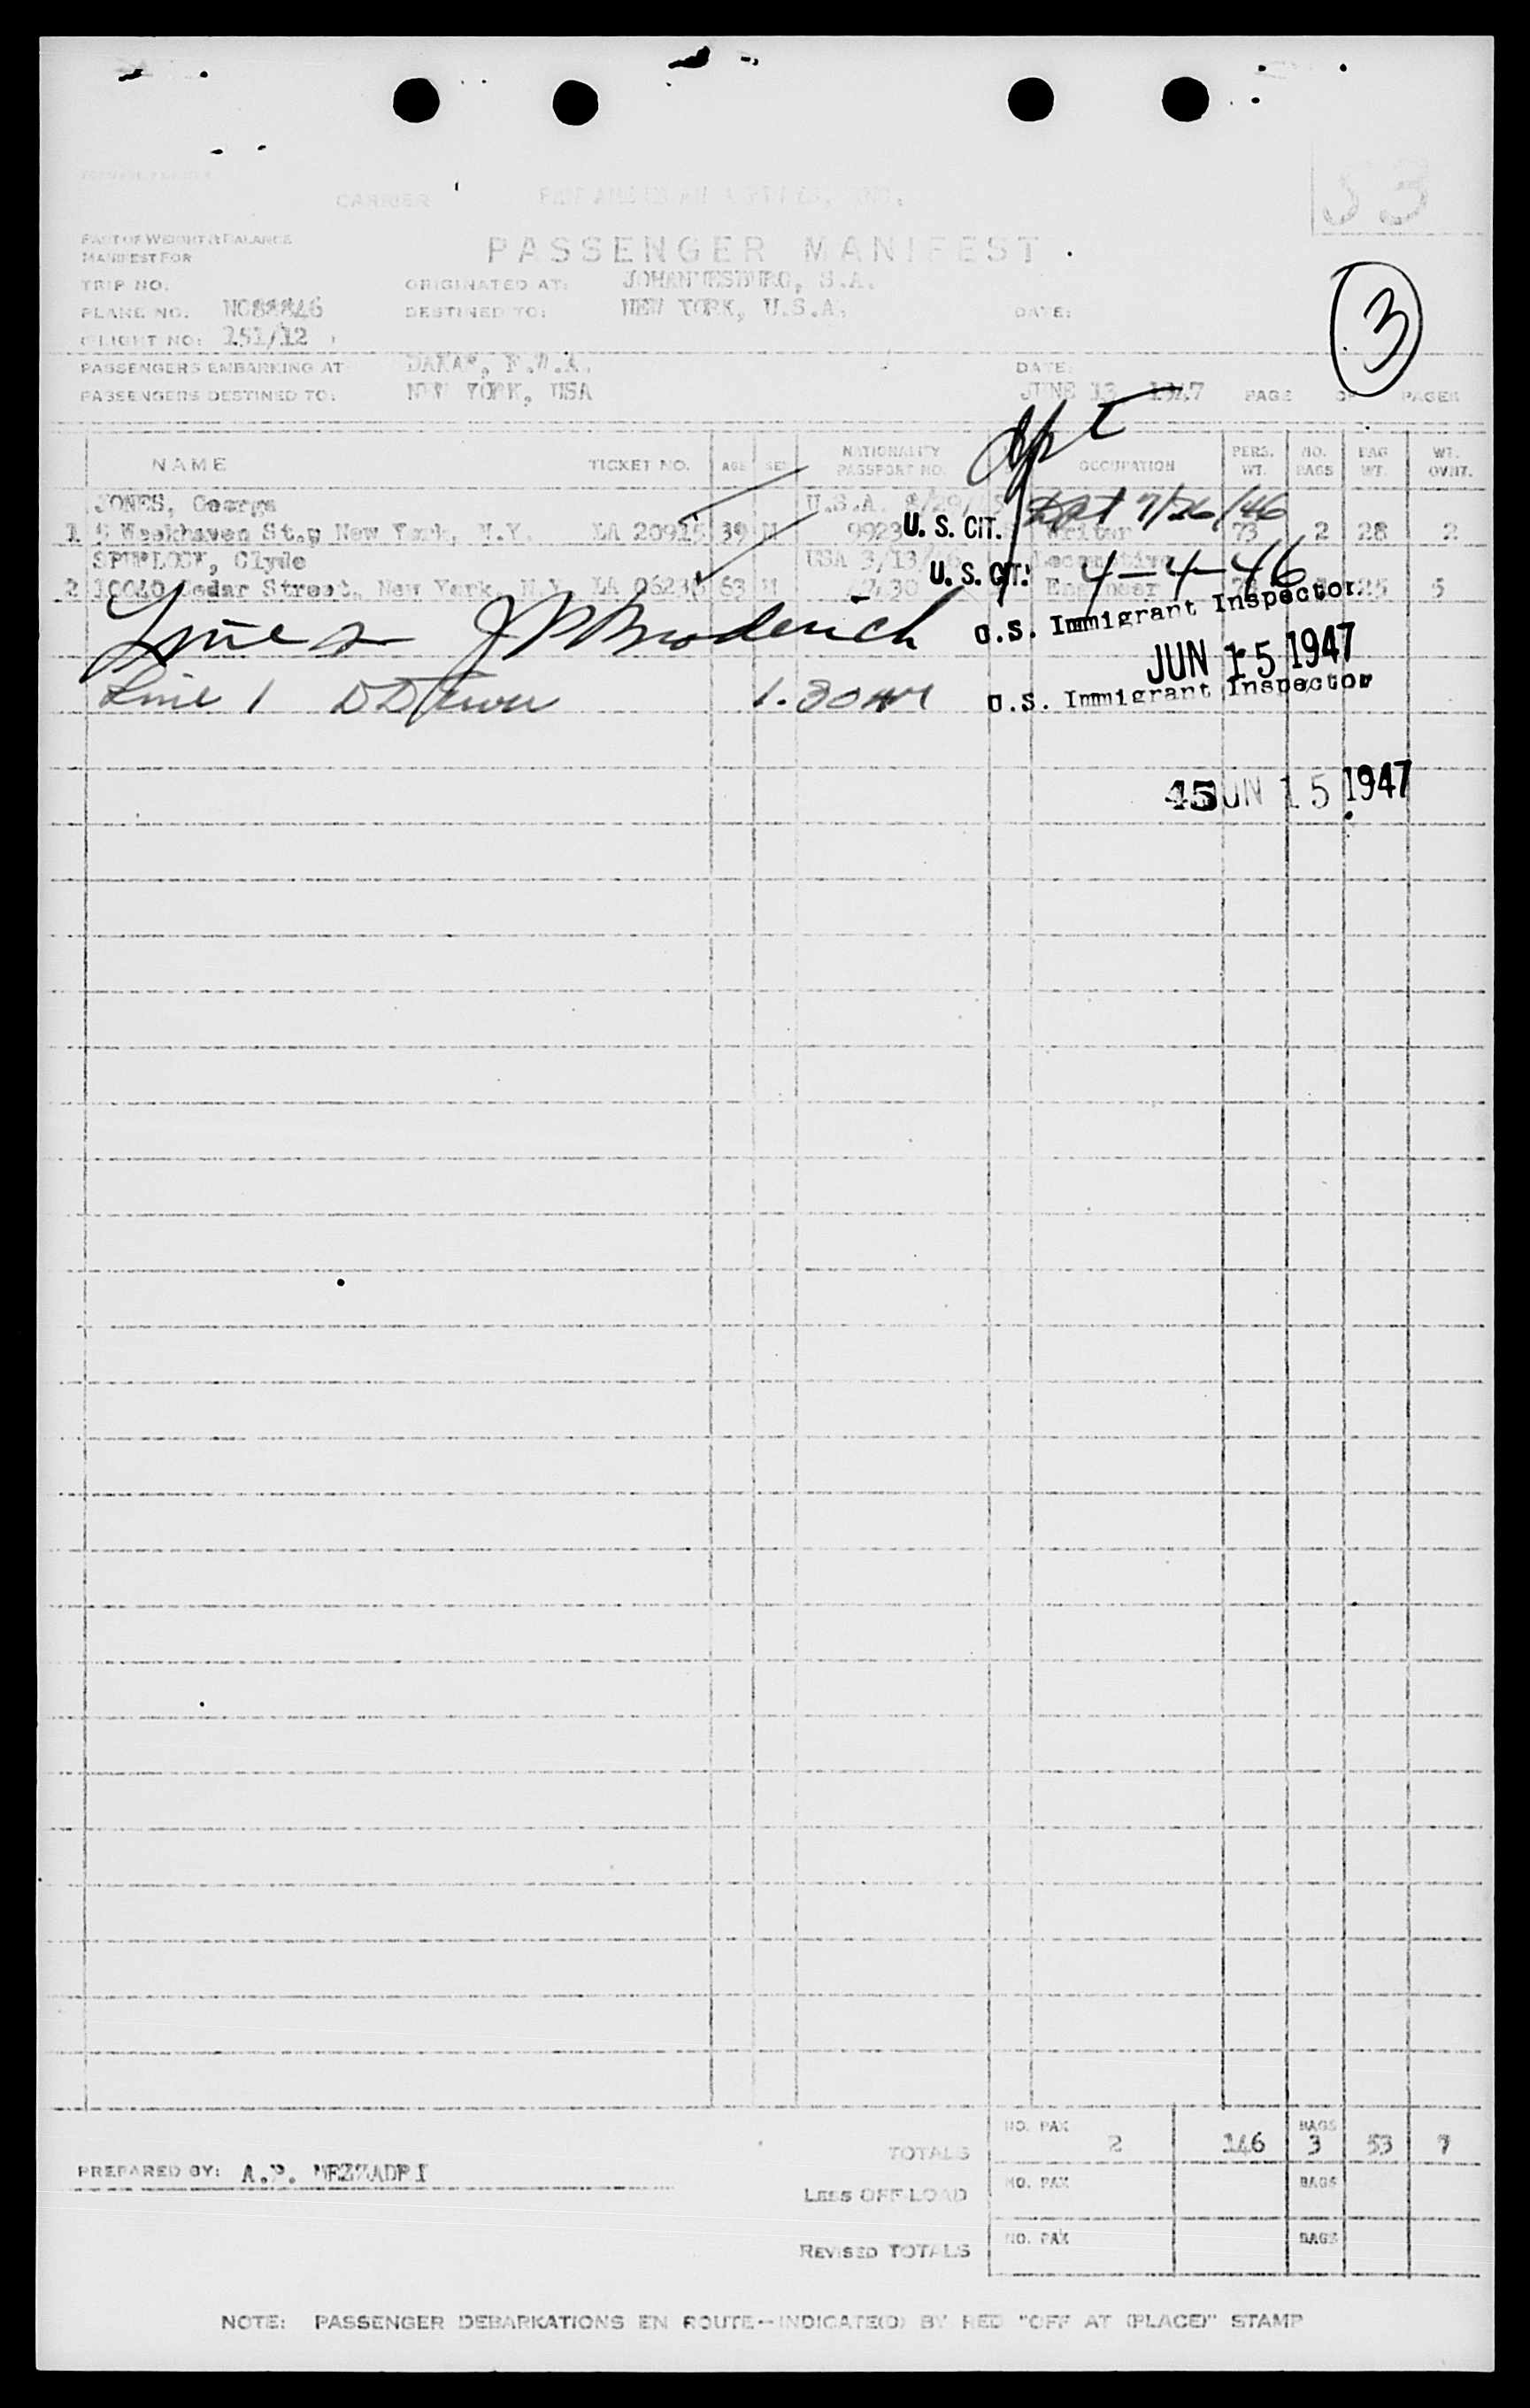 CARRIER PAN AMERICAN AIRWAYS, INC.
33
PART OF WEIGHT & BALANCE
MANIFEST FOR
PASSENGER MANIFEST
TRIP NO. ORIGINATED AT: JOHANNESBURG, S.A.
PLANE NO. NC88846 DESTINED TO: NEW YORK, U.S.A. DATE:
FLIGHT NO: 151/12
3
PASSENGERS EMBARKING AT DAKAR, F.W.A. DATE:
PASSENGERS DESTINED TO: NEW YORK, USA JUNE 13 1947 PAGE OF PAGES
NAME TICKET NO. AGE SEX NATIONALITY PASSPORT NO. OCCUPATION PERS. WT. NO. BAGS BAG WT. WT. OVRT.
JONES, George U.S.A. 7/26/46
1 Weekhaven St., New York, N.Y. LA 20915 39 M 9923 U. S. CIT. Writer 73 2 28 2
SPURLOCK, Clyde USA 3/13 Locomotive 4-4-46
2 10040 Cedar Street, New York, N.Y. LA 06236 63 M U. S. CIT. Engineer 25 5
Line 2 JP Broderick U.S. Immigrant Inspector
JUN 15 1947
Line 1 1.30 AM U.S. Immigrant Inspector
JUN 15 1947
TOTALS NO. PAX 2 146 BAGS 3 53 7
PREPARED BY: A.P.
LESS OFF-LOAD NO. PAX BAGS
REVISED TOTALS NO. PAX BAGS
NOTE: PASSENGER DEBARKATIONS EN ROUTE—INDICATE(D) BY RED "OFF AT (PLACE)" STAMP